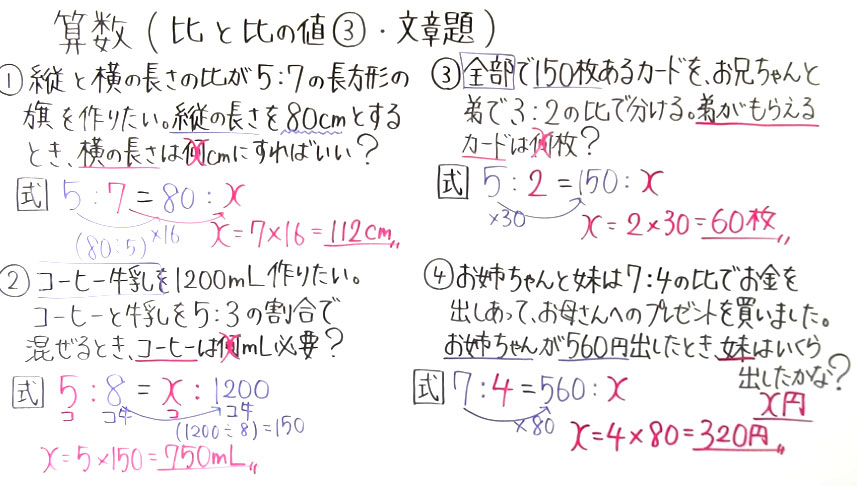 算数(比と比の値③・文章題)
①縦と横の長さの比が5:7の長方形の
旗を作りたい。縦の長さを80cmとする
とき、横の長さは何cmにすればいい?
x
式 5:7=80:x
(80÷5) ×16
x=7×16=112cm〃
②コーヒー牛乳を1200mL作りたい。
コーヒーと牛乳を5:3の割合で
混ぜるとき、コーヒーは何mL必要?
x
式 5:8=x:1200
コ コ牛 コ コ牛
(1200÷8)=150
x=5×150=750mL〃
③全部で150枚あるカードを、お兄ちゃんと
弟で3:2の比で分ける。弟がもらえる
カードは何枚?
x
式 5:2=150:x
×30
x=2×30=60枚〃
④お姉ちゃんと妹は7:4の比でお金を
出しあって、お母さんへのプレゼントを買いました。
お姉ちゃんが560円出したとき、妹はいくら
出したかな?
x円
式 7:4=560:x
×80
x=4×80=320円〃